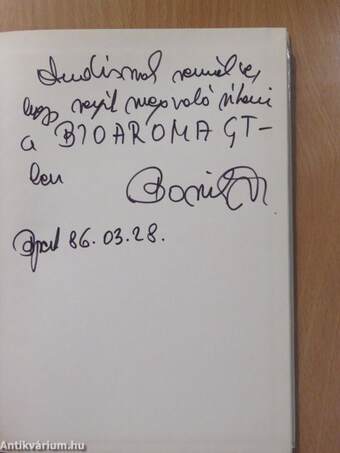 Andrásnak remélve,
hogy segít megvalósítani
a BIOAROMA GT-
ben
Bpest 86.03.28.
Antikvárium.hu